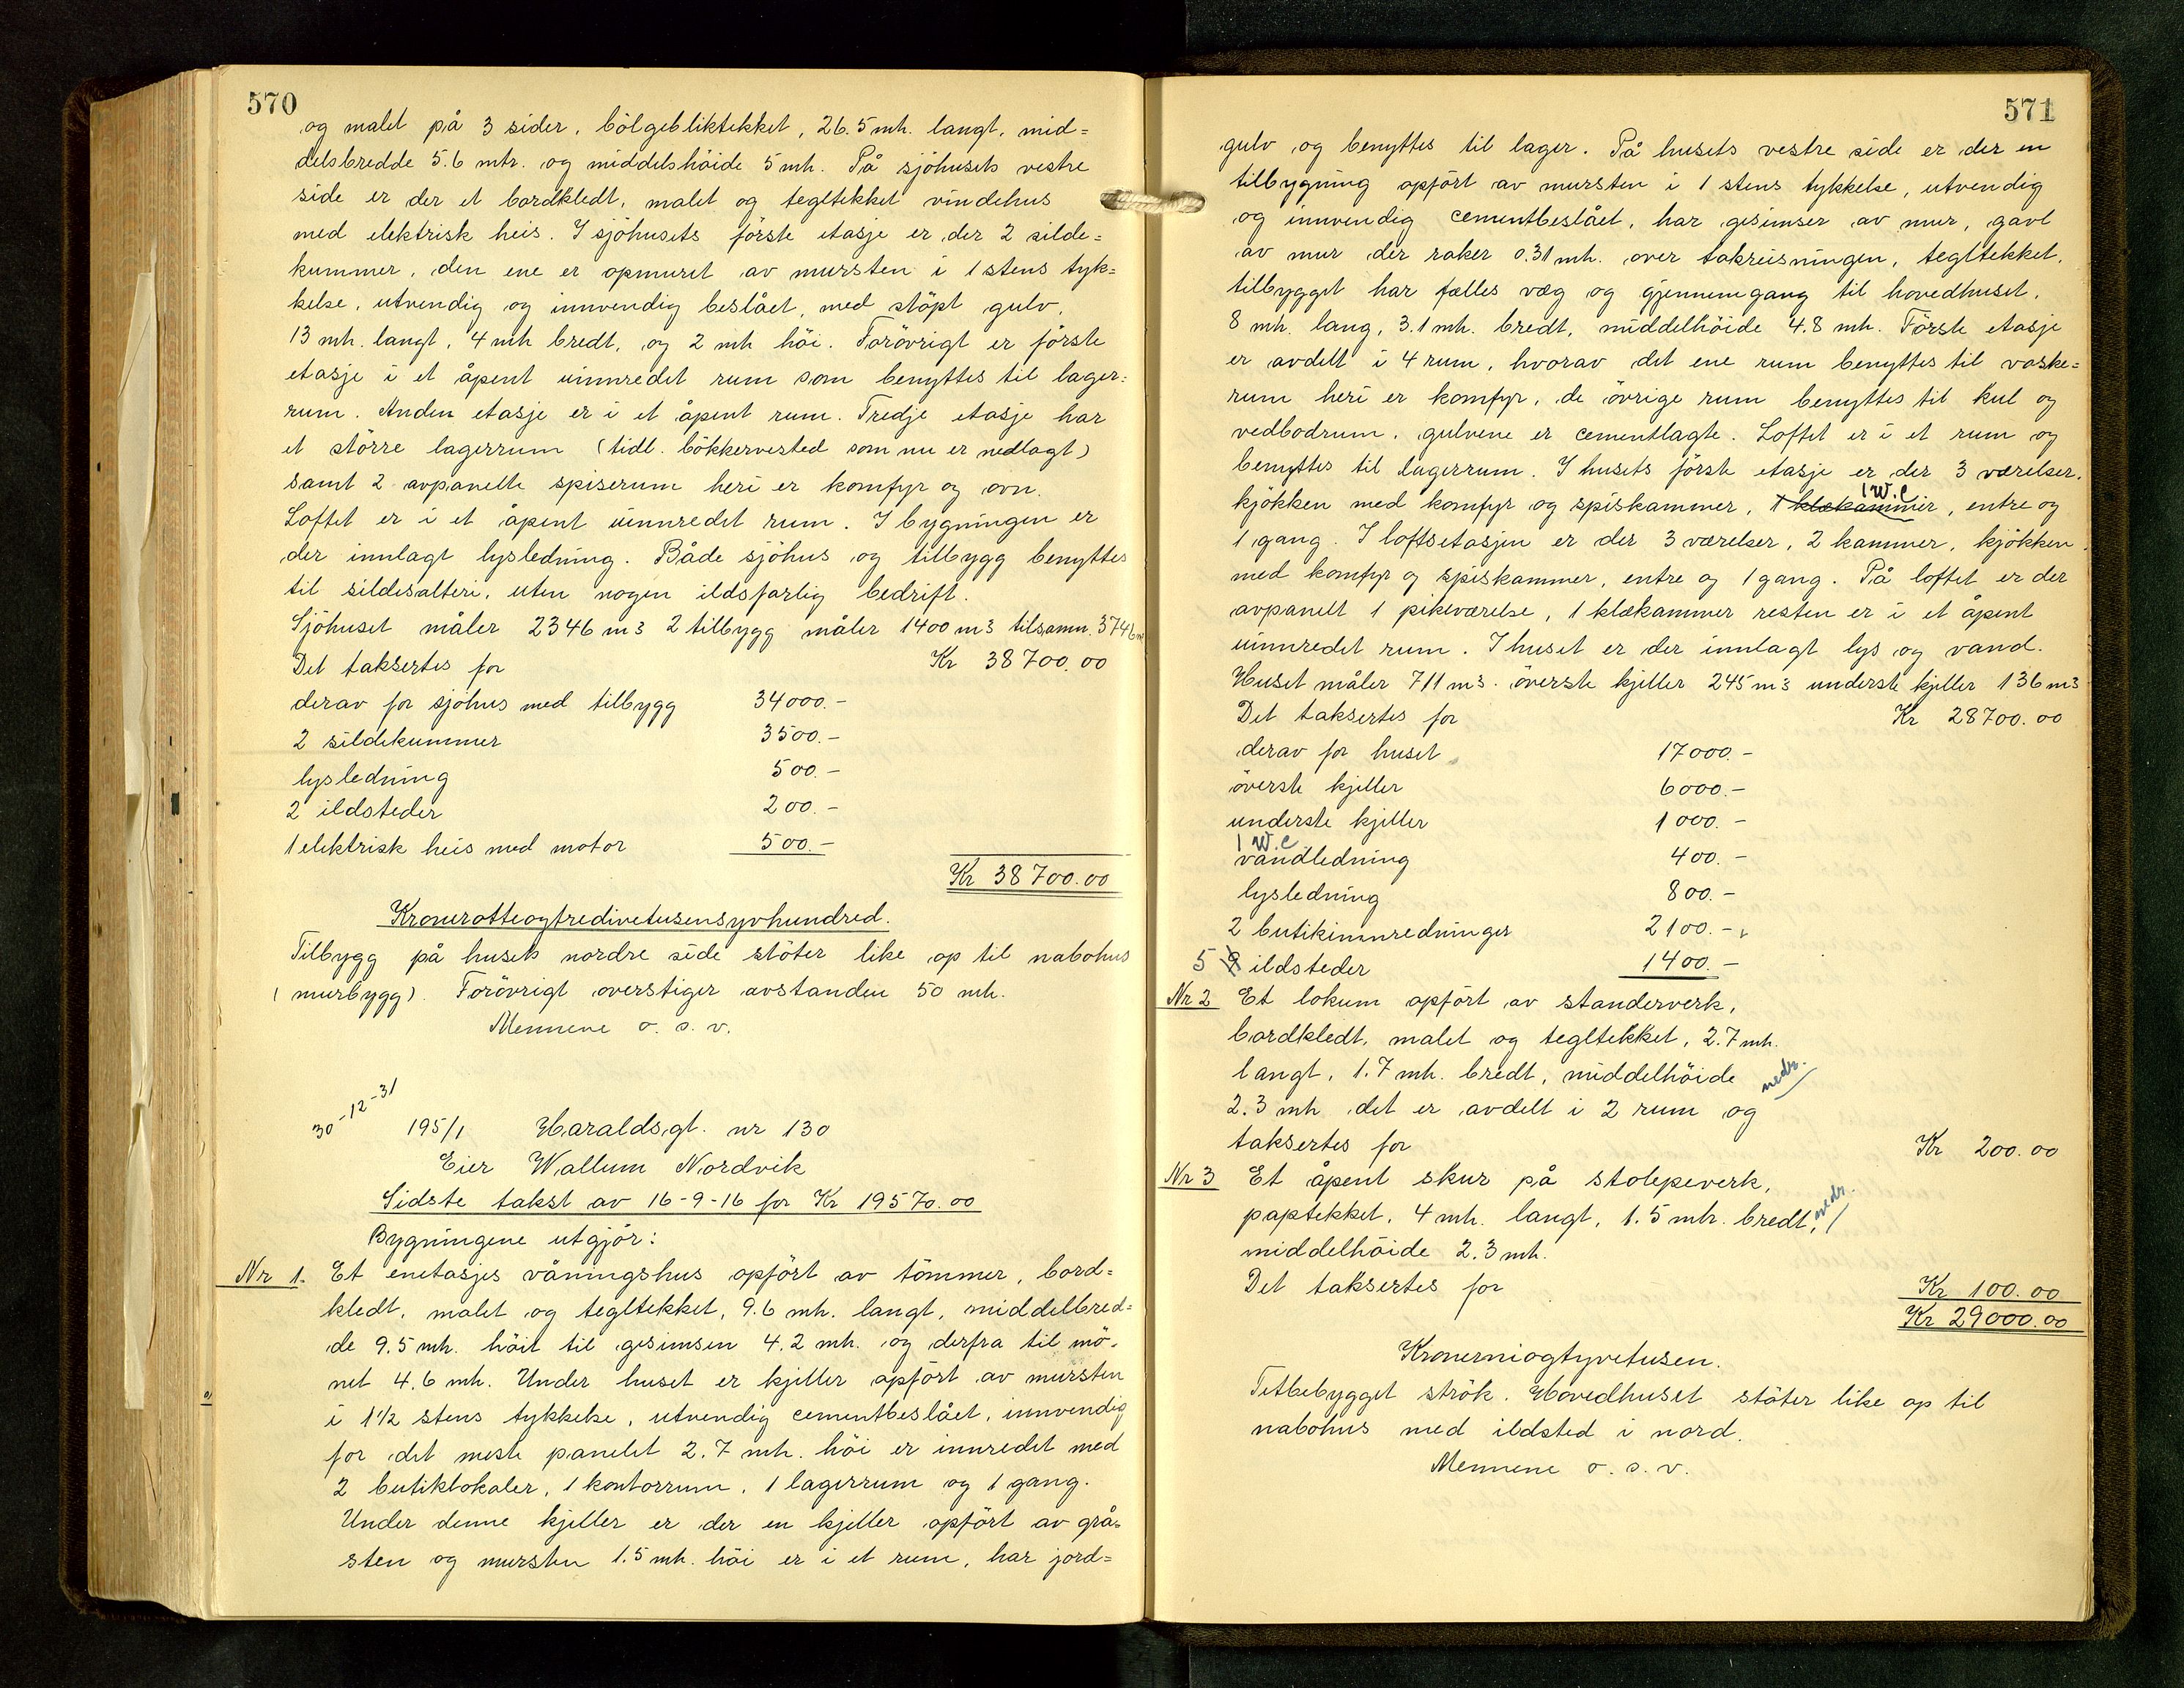 570
og malet på 3 sider, bölgebliktekket, 26.5 mtr. langt, mid=
delsbredde 5.6 mtr. og middelshöide 5 mtr. På sjöhusets vestre
side er der et bordkledt, malet og tegltekket vindehus
med elektrisk heis. I sjöhusets förste etasje er der 2 silde=
kummer, den ene er opmuret av mursten i 1 stens tyk=
kelse, utvendig og innvendig beslået, med stöpt gulv,
13 mtr. langt, 4 mtr bredt, og 2 mtr höi. Forövrigt er förste
etasje i et åpent uinnredet rum som benyttes til lager=
rum. Anden etasje er i et åpent rum. Tredje etasje har
et större lagerrum (tidl. bökkervested som nu er nedlagt)
samt 2 avpanelte spiserum heri er komfyr og ovn.
Loftet er i et åpent uinnredet rum. I bygningen er
der innlagt lysledning. Både sjöhus og tilbygg benyttes
til sildesalteri, uten nogen ildsfarlig bedrift.
Sjöhuset måler 2346 m3 2 tilbygg måler 1400 m3 tilsamn. 3746 m
Det taksertes for Kr 38700.00
derav for sjöhus med tilbygg 34000.-
2 sildekummer 3500.-
lysledning 500.-
2 ildsteder 200.-
1 elektrisk heis med motor 500.-
Kr 38700.00
Kronerotteogtredivetusensyvhundred.
Tilbygg på husets nordre side stöter like op til nabohus
(murbygg). Forövrigt overstiger avstanden 50 mtr.
Mennene o. s. v.
30-12-31
195/1 Haraldsgt. nr 130
Eier Wallum Nordvik
Sidste takst av 16-9-16 for Kr 19570.00
Bygningene utgjör:
Nr 1. Et enetasjes våningshus opfört av tömmer, bord=
kledt, malet og tegltekket, 9.6 mtr. langt, middelbred=
de 9.5 mtr. höit til gesimsen 4.2 mtr. og derfra til mö-
net 4.6 mtr. Under huset er kjeller opfört av mursten
i 1½ stens tykkelse, utvendig cementbeslået, innvendig
for det meste panelet 2.7 mtr. höi er innredet med
2 butiklokaler, 1 kontorrum, 1 lagerrum og 1 gang.
Under denne kjeller er der en kjeller opfört av grå-
sten og mursten 1.5 mtr. höi er i et rum, har jord=
571
gulv og benyttes til lager. På husets vestre side er der en
tilbygning opfört av mursten i 1 stens tykkelse, utvendig
og innvendig cementbeslået, har gesimser av mur, gavl
av mur der raker 0.31 mtr. over takreisningen, tegltekket.
tilbygget har fælles væg og gjennemgang til hovedhuset.
8 mtr. lang, 3.1 mtr. bredt, middelhöide 4.8 mtr. Förste etasje
er avdelt i 4 rum, hvorav det ene rum benyttes til vaske=
rum heri er komfyr, de övrige rum benyttes til kul og
vedbodrum, gulvene er cementlagte. Loftet er i et rum og
benyttes til lagerrum. I husets förste etasje er der 3 værelser,
1 W.C
kjökken med komfyr og spiskammer, 1 klækammer, entre og
1 gang. I loftsetasjen er der 3 værelser, 2 kammer, kjökken
med komfyr og spiskammer, entre og 1 gang. På loftet er der
avpanelt 1 pikeværelse, 1 klækammer resten er i et åpent
uinnredet rum. I huset er der innlagt lys og vand.
Huset måler 711 m3. överste kjeller 245 m3 underste kjeller 136 m3
Det taksertes for Kr 28700.00
derav for huset 17000.-
överste kjeller 6000.-
underste kjeller 1000.-
1 W.C
vandledning 400.-
lysledning 800.-
2 butikinnredninger 2100.-
5 9 ildsteder 1400.-
Nr 2 Et lokum opfört av standerverk,
bordkledt, malet og tegltekket, 2.7 mtr.
langt, 1.7 mtr. bredt, middelhöide nedr.
2.3 mtr. det er avdelt i 2 rum og
taksertes for Kr 200.00
Nr 3 Et åpent skur på stolpeverk,
paptekket, 4 mtr. langt, 1.5 mtr. bredt, nedr.
middelhöide 2.3 mtr.
Det taksertes for Kr 100.00
Kr 29000.00
Kronerniogtyvetusen.
Tetbebygget strök. Hovedhuset stöter like op til
nabohus med ildsted i nord.
Mennene o. s. v.